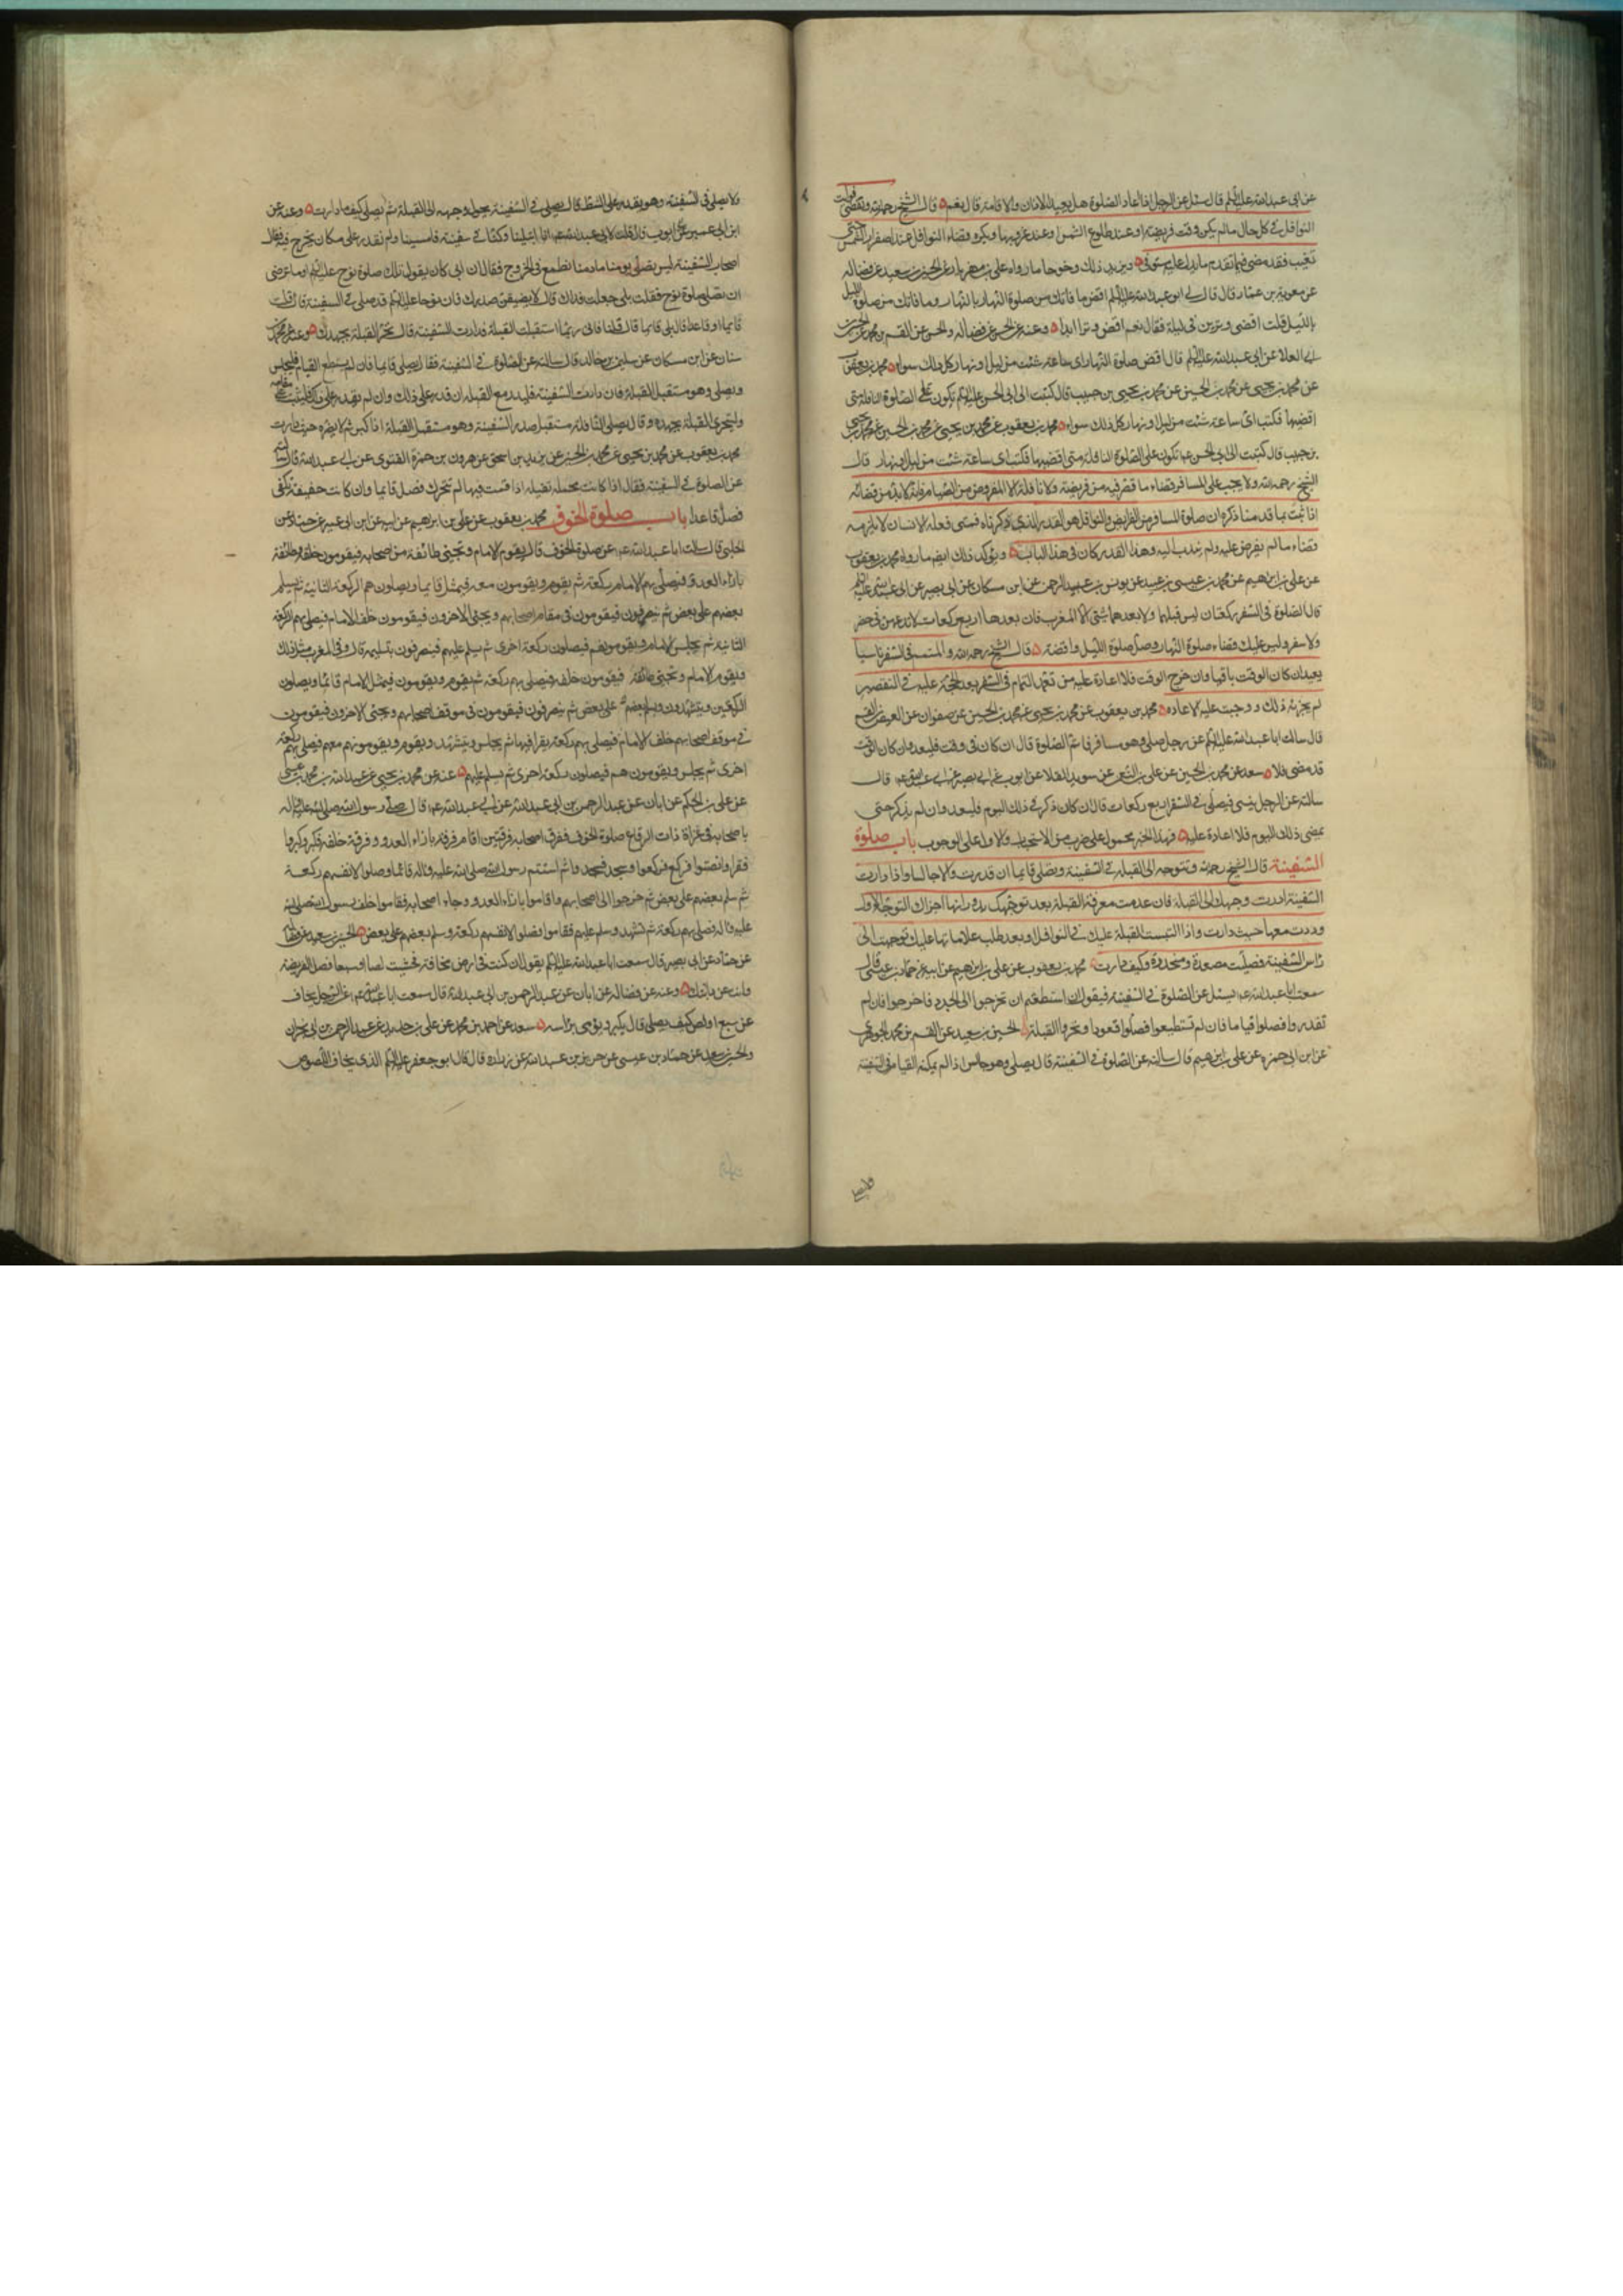 عن ابى عبد الله عليه السلم قال سئل عن الرجل اذا اعاد الصلوة هل يعيد الاذان والاقامة قال نعم قال الشيخ رحمه الله وتقضى فوائت
النوافل فى كل حال مالم يكن وقت فريضة او عند طلوع الشمس او عند غروبها ويكره قضاء النوافل عند اصفرار الشمس حتى
تغيب فقد مضى فيما تقدم ما يدل عليه مستوفى ويزيد ذلك وضوحا ما رواه على بن مهزيار عن الحسين بن سعيد عن فضاله
عن معوية بن عمار قال قال لى ابو عبد الله عليه السلم اقض ما فاتك من صلوة النهار بالنهار وما فاتك من صلوة الليل
بالليل قلت اقضى وترين فى ليلة فقال نعم اقض وترا ابدا وعنه عن الحسن عن فضاله والحسن عن القسم بن محمد عن الحسين بن
ابى العلا عن ابى عبد الله عليه السلم قال اقض صلوة النهار اى ساعة شئت من ليل او نهار كل ذلك سواء محمد بن يعقوب
عن محمد بن يحيى عن محمد بن الحسين عن محمد بن يحيى بن حبيب قال كتبت الى ابى الحسن عليه السلم تكون على الصلوة النافلة متى
اقضيها فكتب اى ساعة شئت من ليل او نهار كل ذلك سواء محمد بن يعقوب عن محمد بن يحيى عن محمد بن الحسين عن محمد بن يحيى
بن حبيب قال كتبت الى ابى الحسن ع تكون على الصلوة النافلة متى اقضيها فكتب اى ساعة شئت من ليل او نهار قال
الشيخ رحمه الله ولا يجب على المسافر قضاء ما قصر فيه من فريضة ولا نافلة الا المفروض من الصيام فانه لا بد من قضائه
اذا ثبت بما قدمنا ذكره ان صلوة المسافر من الفرايض والنوافل هو القدر الذى ذكرناه فمتى فعله الانسان لا يلزمه
قضاء ما لم يفرض عليه ولم يندب اليه وهذا القدر كان فى هذا الباب ويؤكد ذلك ايضا ما رواه محمد بن يعقوب
عن على بن ابرهيم عن محمد بن عيسى بن عبيد عن يونس بن عبد الرحمن عن ابن مسكان عن ابى بصير عن ابى عبد الله عليه السلم
قال الصلوة فى السفر ركعتان ليس قبلهما ولا بعدهما شئ الا المغرب فان بعدها اربع ركعات لا تدعهن فى حضر
ولا سفر وليس عليك قضاء صلوة النهار وصل صلوة الليل واقضه قال الشيخ رحمه الله والمتمم فى السفر ناسيا
يعيد ان كان الوقت باقيا وان خرج الوقت فلا اعادة عليه من تعمد التمام فى السفر بعد الحجة عليه فى التقصير
لم يجزئه ذلك ووجبت عليه الاعاده محمد بن يعقوب عن محمد بن يحيى عن محمد بن الحسين عن صفوان عن العيص بن القسم
قال سالت ابا عبد الله عليه السلم عن رجل صلى وهو مسافر فاتم الصلوة قال ان كان فى وقت فليعد وان كان الوقت
قد مضى فلا سعد عن محمد بن الحسين عن على بن النعمن عن سويد القلا عن ابى ايوب عن ابى بصير عن ابى عبد الله ع قال
سالته عن الرجل ينسى فيصلى فى السفر اربع ركعات قال ان كان ذكر فى ذلك اليوم فليعد وان لم يذكر حتى
يمضى ذلك اليوم فلا اعادة عليه فهذا الخبر محمول على ضرب من الاستحباب والاول على الوجوب باب صلوة
السفينة قال الشيخ رحمه الله وتتوجه الى القبلة فى السفينة وتصلى قايما ان قدرت والا جالسا واذا دارت
السفينة ادرت وجهك الى القبلة فان عدمت معرفة القبلة بعد توجهك بدورانها اجزاك التوجه الاول
ودرت معها حيث دارت واذا التبست القبلة عليك فى النوافل وبعد طلب علاماتها عليك توجهت الى
راس السفينة فصليت مصعدة ومنحدرة وكيف دارت محمد بن يعقوب عن على بن ابرهيم عن ابيه عن حماد بن عيسى قال
سمعت ابا عبد الله ع يسئل عن الصلوة فى السفينة فيقول ان استطعتم ان تخرجوا الى الجدد فاخرجوا فان لم
تقدروا فصلوا قياما فان لم تستطيعوا فصلوا قعودا وتحروا القبلة الحسين بن سعيد عن القسم بن محمد الجوهرى
عن ابن ابى حمزه عن على بن ابرهيم قال سالته عن الصلوة فى السفينة قال يصلى وهو جالس اذا لم يمكنه القيام فى السفينة
ولا يصلى فى السفينة وهو يقدر على الشط قال يصلى فى السفينة يحول وجهه الى القبلة ثم يصلى كيف ما دارت وعنه عن
ابن ابى عمير عن ابى ايوب قال قلت لابى عبد الله ع انا ابتلينا وكنا فى سفينة فامسينا ولم نقدر على مكان نخرج فيه فقال
اصحاب السفينة ليس نصلى يومنا ما دمنا نطمع فى الخروج فقال ان ابى كان يقول تلك صلوة نوح عليه السلم اوما ترضى
ان تصلى صلوة نوح فقلت بلى جعلت فداك قال لا يضيقن صدرك فان نوحا عليه السلم قد صلى فى السفينة قال قلت
قايما او قاعدا قال بلى قايما قال قلنا فانى ربما استقبلت القبلة فدارت السفينة قال تحر القبلة بجهدك وعنه عن محمد بن
سنان عن ابن مسكان عن سليمن بن خالد قال سالته عن الصلوة فى السفينة فقال يصلى قايما فان لم يستطع القيام فليجلس
ويصلى وهو مستقبل القبلة فان دارت السفينة فليدر مع القبلة ان قدر على ذلك وان لم يقدر على ذلك فليثبت على مقامه
وليتحرى القبلة بجهده وقال يصلى النافلة مستقبل صدر السفينة وهو مستقبل القبلة اذا كبر ثم لا يضره حيث دارت
محمد بن يعقوب عن محمد بن يحيى عن محمد بن الحسين عن يزيد بن اسحق عن هرون بن حمزة الغنوى عن ابى عبد الله قال سالته
عن الصلوة فى السفينة فقال اذا كانت محملة ثقيلة اذا قمت فيها لم تتحرك فصل قايما وان كانت خفيفة تكفى
فصل قاعدا باب صلوة الخوف محمد بن يعقوب عن على بن ابراهيم عن ابيه عن ابن ابى عمير عن حماد عن
الحلبى قال سالت ابا عبد الله ع عن صلوة الخوف قال يقوم الامام وتجئ طائفة من اصحابه فيقومون خلفه وطائفة
بازاء العدو فيصلى بهم الامام ركعة ثم يقوم ويقومون معه فيمثل قايما ويصلون هم الركعة الثانية ثم يسلم
بعضهم على بعض ثم ينصرفون فيقومون فى مقام اصحابهم ويجئ الاخرون فيقومون خلف الامام فيصلى بهم الركعة
الثانية ثم يجلس الامام فيقومون هم فيصلون ركعة اخرى ثم يسلم عليهم فينصرفون بتسليمه قال وفى المغرب مثل ذلك
ويقوم الامام وتجئ طائفة فيقومون خلفه فيصلى بهم ركعة ثم يقوم ويقومون فيمثل الامام قائما ويصلون
الركعتين ويتشهدون ويسلم بعضهم على بعض ثم ينصرفون فيقومون فى موقف اصحابهم ويجئ الاخرون فيقومون
فى موقف اصحابهم خلف الامام فيصلى بهم ركعة يقرا فيها ثم يجلس ويتشهد ويقوم ويقومون هم معه فيصلى بهم ركعة
اخرى ثم يجلس ويقومون هم فيصلون ركعة اخرى ثم يسلم عليهم عنه عن محمد بن يحيى عن عبد الله بن محمد بن عيسى
عن على بن الحكم عن ابان عن عبد الرحمن بن ابى عبد الله عن ابى عبد الله ع قال صلى رسول الله صلى الله عليه واله
باصحابه فى غزاة ذات الرقاع صلوة الخوف ففرق اصحابه فرقتين اقام فرقة بازاء العدو وفرقة خلفه فكبر وكبروا
فقرا وانصتوا فركع فركعوا وسجد فسجدوا ثم استتم رسول الله صلى الله عليه واله قائما وصلوا لانفسهم ركعة
ثم سلم بعضهم على بعض ثم خرجوا الى اصحابهم واقاموا بازاء العدو وجاء اصحابهم فقاموا خلف رسول الله صلى الله
عليه واله فصلى بهم ركعة ثم تشهد وسلم عليهم فقاموا فصلوا لانفسهم ركعة وسلم بعضهم على بعض الحسين بن سعيد عن فضالة
عن حماد عن ابى بصير قال سمعت ابا عبد الله عليه السلم يقول ان كنت فى ارض مخافة فخشيت لصا او سبعا فصل الفريضة
وانت على دابتك وعنه عن فضاله عن ابان عن عبد الرحمن بن ابى عبد الله قال سمعت ابا عبد الله ع عن الرجل يخاف
من سبع او لص كيف يصلى قال يكبر ويومى براسه سعد عن احمد بن محمد عن على بن حديد عن عبد الرحمن بن ابى نجران
والحسين بن سعيد عن حماد بن عيسى عن حريز بن عبد الله عن زراره قال قال ابو جعفر عليه السلم الذى يخاف اللصوص